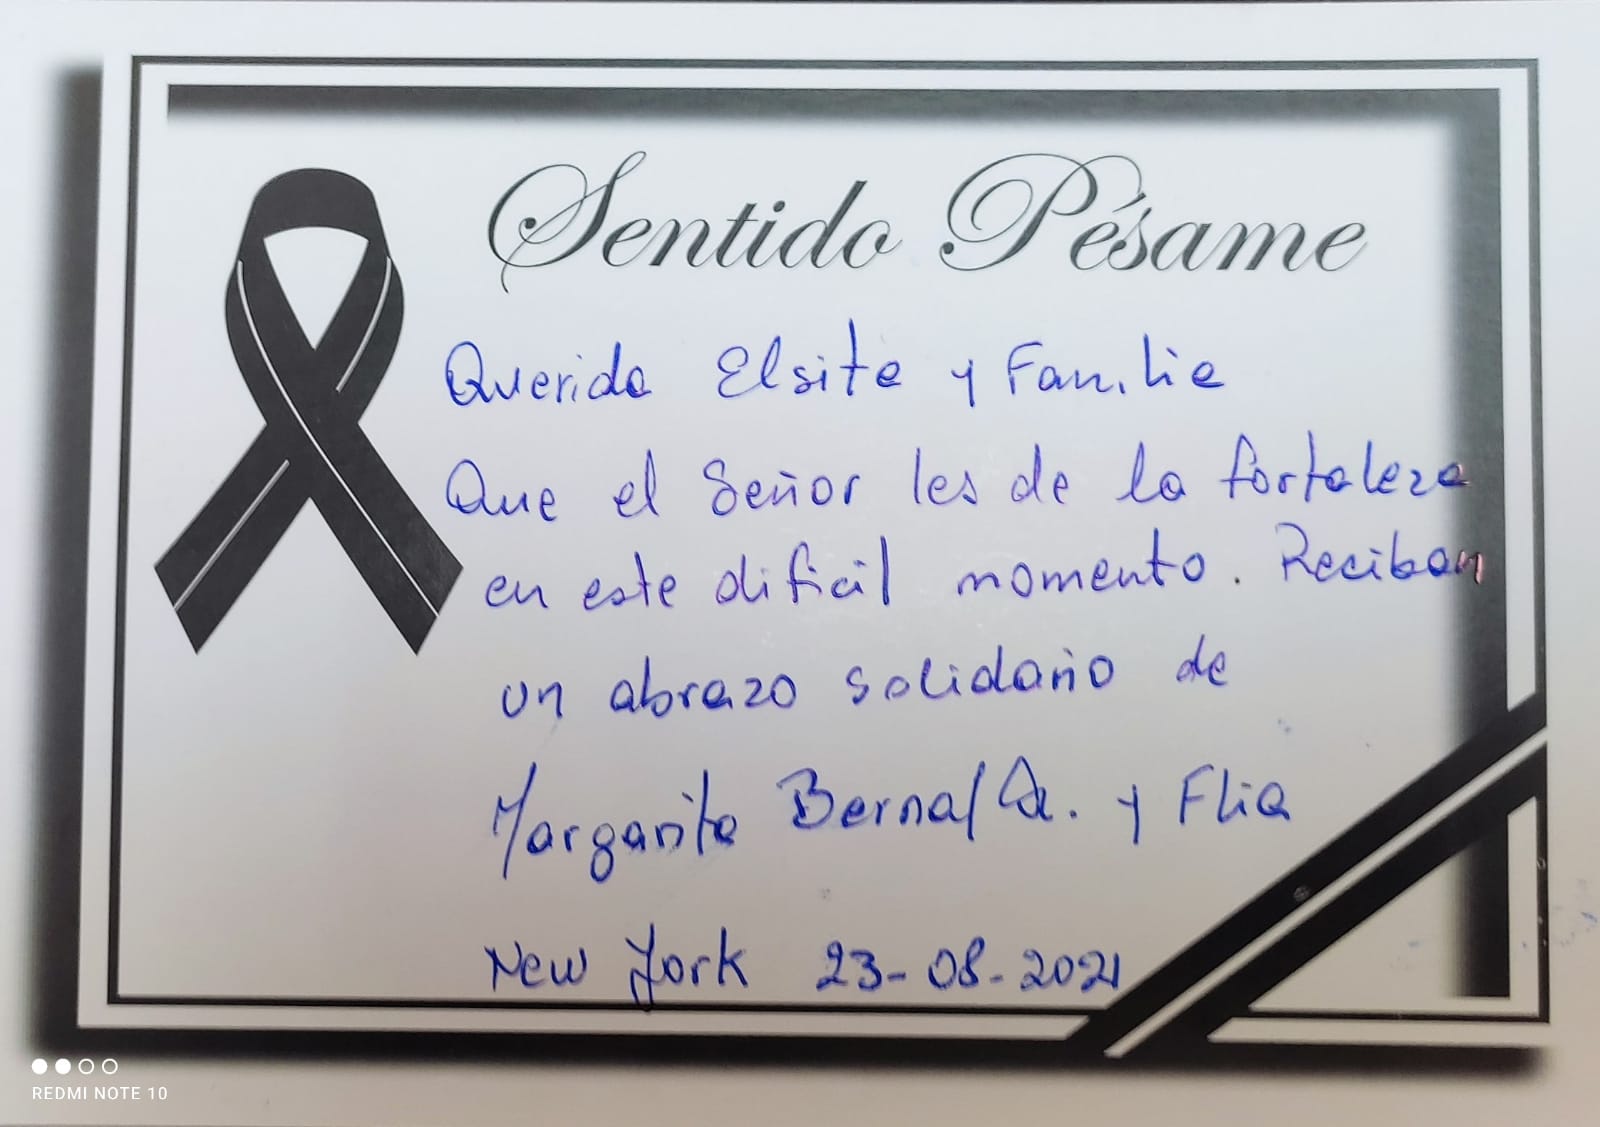 Sentido Pésame
Querida Elsita y Familia
Que el Señor les de la fortaleza
en este dificil momento. Reciban
un abrazo solidario de
Margarita Bernal Q. y Flia
New York 23-08-2021
REDMI NOTE 10